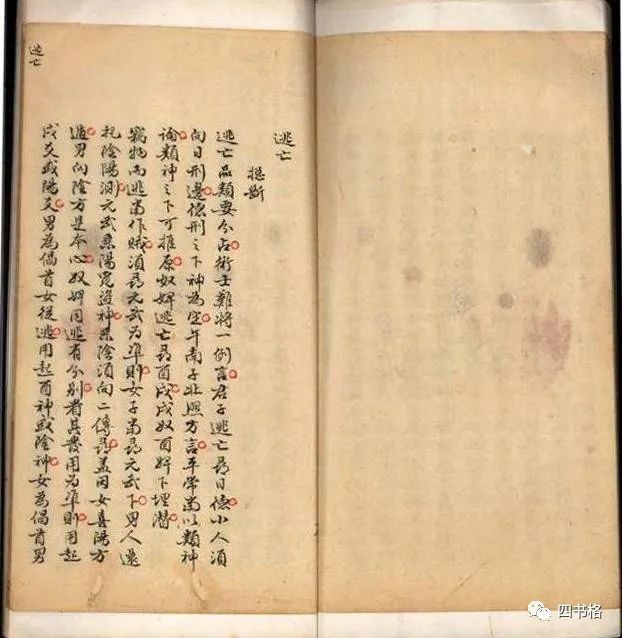 逃亡
揔斷
逃亡品類要分占術士難將一例言君子逃亡尋日德小人須
向日刑邊德刑之下神為定午南子北照方言平常當以類神
論類神之下可推原奴婢逃亡尋酉戌戌奴酉婢下埋潛
竊物而逃當作賊須尋元武為準則女子當尋元武下男人還
托陰陽測元武乘陽見盜神乘陰須向二傳尋蓋因女喜陽方
過男向陰方是本心奴婢同逃有分别看其發用為準則用起
戌爻或陽爻男為倡首女從逃用起酉神或陰神女為倡首男
逃亡
四书格